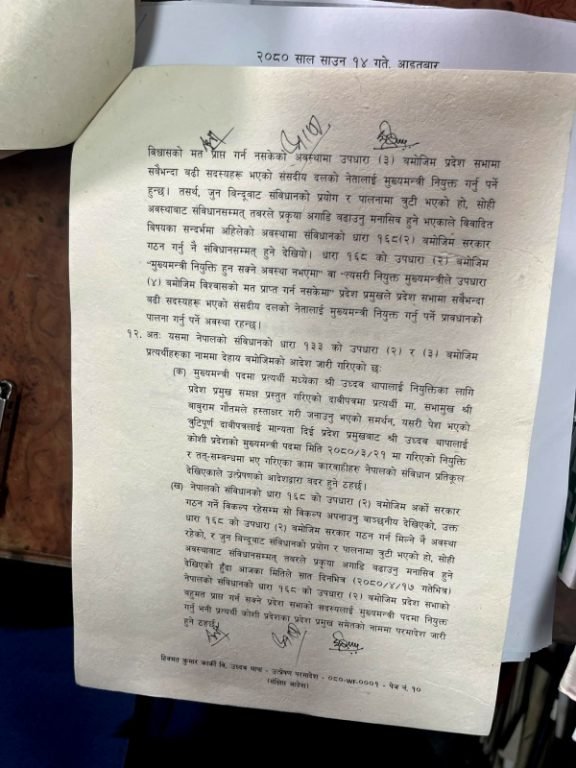 २०८० साल साउन १४ गते, आइतबार
विश्वासको मत प्राप्त गर्न नसकेको अवस्थामा उपधारा (३) बमोजिम प्रदेश सभामा
सबैभन्दा बढी सदस्यहरू भएको संसदीय दलको नेतालाई मुख्यमन्त्री नियुक्त गर्नु पर्ने
हुन्छ। तसर्थ, जुन विन्दूबाट संविधानको प्रयोग र पालनामा त्रुटी भएको हो, सोही
अवस्थाबाट संविधानसम्मत् तवरले प्रकृया अगाडि बढाउनु मनासिव हुने भएकाले विवादित
बिषयका सन्दर्भमा अहिलेको अवस्थामा संविधानको धारा १६८(२) बमोजिम सरकार
गठन गर्नु नै संविधानसम्मत् हुने देखियो। धारा १६८ को उपधारा (२) बमोजिम
"मुख्यमन्त्री नियुक्ति हुन सक्ने अवस्था नभएमा" वा "त्यसरी नियुक्त मुख्यमन्त्रीले उपधारा
(४) बमोजिम विश्वासको मत प्राप्त गर्न नसकेमा" प्रदेश प्रमुखले प्रदेश सभामा सबैभन्दा
बढी सदस्यहरू भएको संसदीय दलको नेतालाई मुख्यमन्त्री नियुक्त गर्नु पर्ने प्रावधानको
पालना गर्नु पर्ने अवस्था रहन्छ।
१२. अतः यसमा नेपालको संविधानको धारा १३३ को उपधारा (२) र (३) बमोजिम
प्रत्यर्थीहरुका नाममा देहाय बमोजिमको आदेश जारी गरिएको छः
(क) मुख्यमन्त्री पदमा प्रत्यर्थी मध्येका श्री उध्दव थापालाई नियुक्तिका लागि
प्रदेश प्रमुख समक्ष प्रस्तुत गरिएको दाबीपत्रमा प्रत्यर्थी मा. सभामुख श्री
बाबुराम गौतमले हस्ताक्षर गरी जनाउनु भएको समर्थन, यसरी पेश भएको
त्रुटिपूर्ण दाबीपत्रलाई मान्यता दिई प्रदेश प्रमुखबाट श्री उध्दव थापालाई
कोशी प्रदेशको मुख्यमन्त्री पदमा मिति २०८०/३/२१ मा गरिएको नियुक्ति
र तत्-सम्बन्धमा भए गरिएका काम कारवाहीहरु नेपालको संविधान प्रतिकूल
देखिएकाले उत्प्रेषणको आदेशद्वारा बदर हुने ठहर्छ।
(ख) नेपालको संविधानको धारा १६८ को उपधारा (२) बमोजिम अर्को सरकार
गठन गर्ने विकल्प रहेसम्म सो विकल्प अपनाउनु बाञ्छनीय देखिएको, उक्त
धारा १६८ को उपधारा (२) बमोजिम सरकार गठन गर्न मिल्ने नै अवस्था
रहेको, र जुन विन्दूबाट संविधानको प्रयोग र पालनामा त्रुटी भएको हो, सोही
अवस्थाबाट संविधानसम्मत् तवरले प्रकृया अगाडि बढाउनु मनासिव हुने
देखिएको हुँदा आजका मितिले सात दिनभित्र (२०८०/४/१७ गतेभित्र)
नेपालको संविधानको धारा १६८ को उपधारा (२) बमोजिम प्रदेश सभाको
बहुमत प्राप्त गर्न सक्ने प्रदेश सभाको सदस्यलाई मुख्यमन्त्री पदमा नियुक्त
गर्नु भनी प्रत्यर्थी कोशी प्रदेशका प्रदेश प्रमुख समेतको नाममा परमादेश जारी
हुने ठहर्छ।
हिक्मत कुमार कार्की वि. उध्दव थापा - उत्प्रेषण परमादेश - ०८०-WF-०००१ - पेज नं. १०
(संक्षिप्त आदेश)